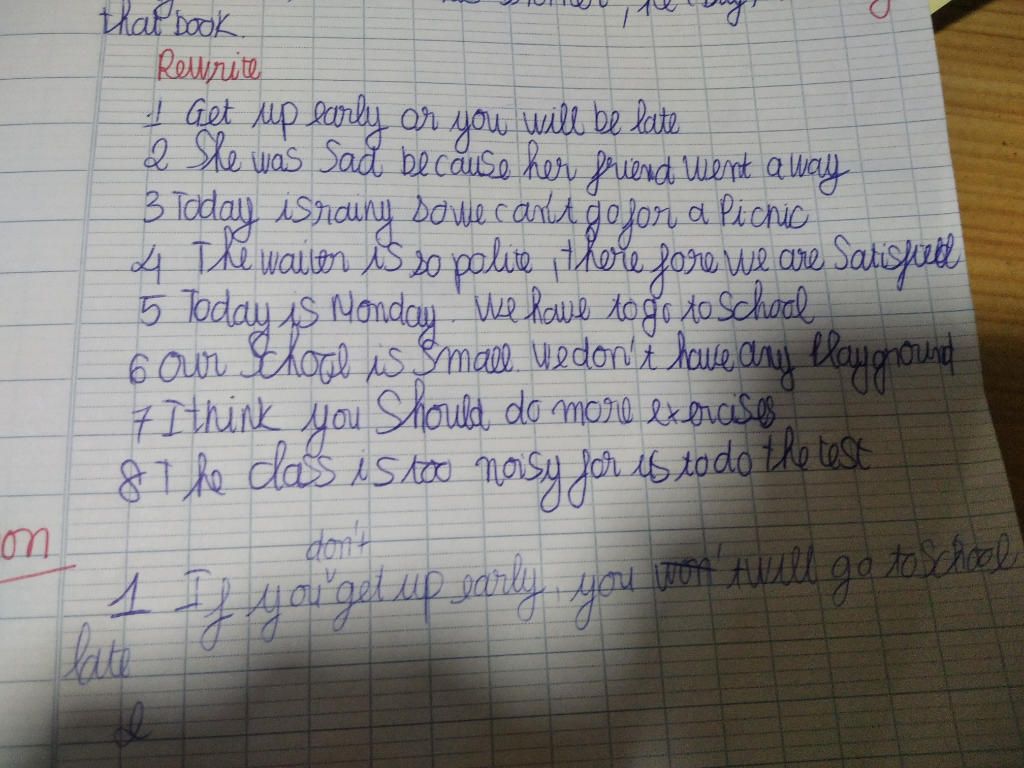 that book.
Rewrite
1 Get up early or you will be late
2 She was Sad because her friend went away
3 Today is rainy so we can't go for a Picnic
4 The waiter is so polite, there fore we are Satisfied
5 Today is Monday. We have to go to School
6 Our School is Small. We don't have any Playground
7 I think you Should do more exercises
8 The class is too noisy for us to do the test
on
don't
1 If you get up early, you will go to School
late